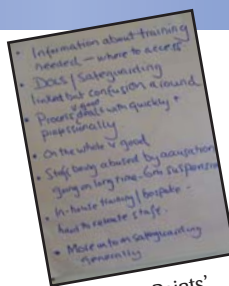 • Information about training
needed – where to access
• DOLS / Safeguarding
linked but confusion around
• Process good deals with quickly +
professionally
• On the whole v good
• Staff being abused by accusation
going on long time - 6m suspension
• In-house training / bespoke -
hard to release staff.
• More info on safeguarding
generally
Points'